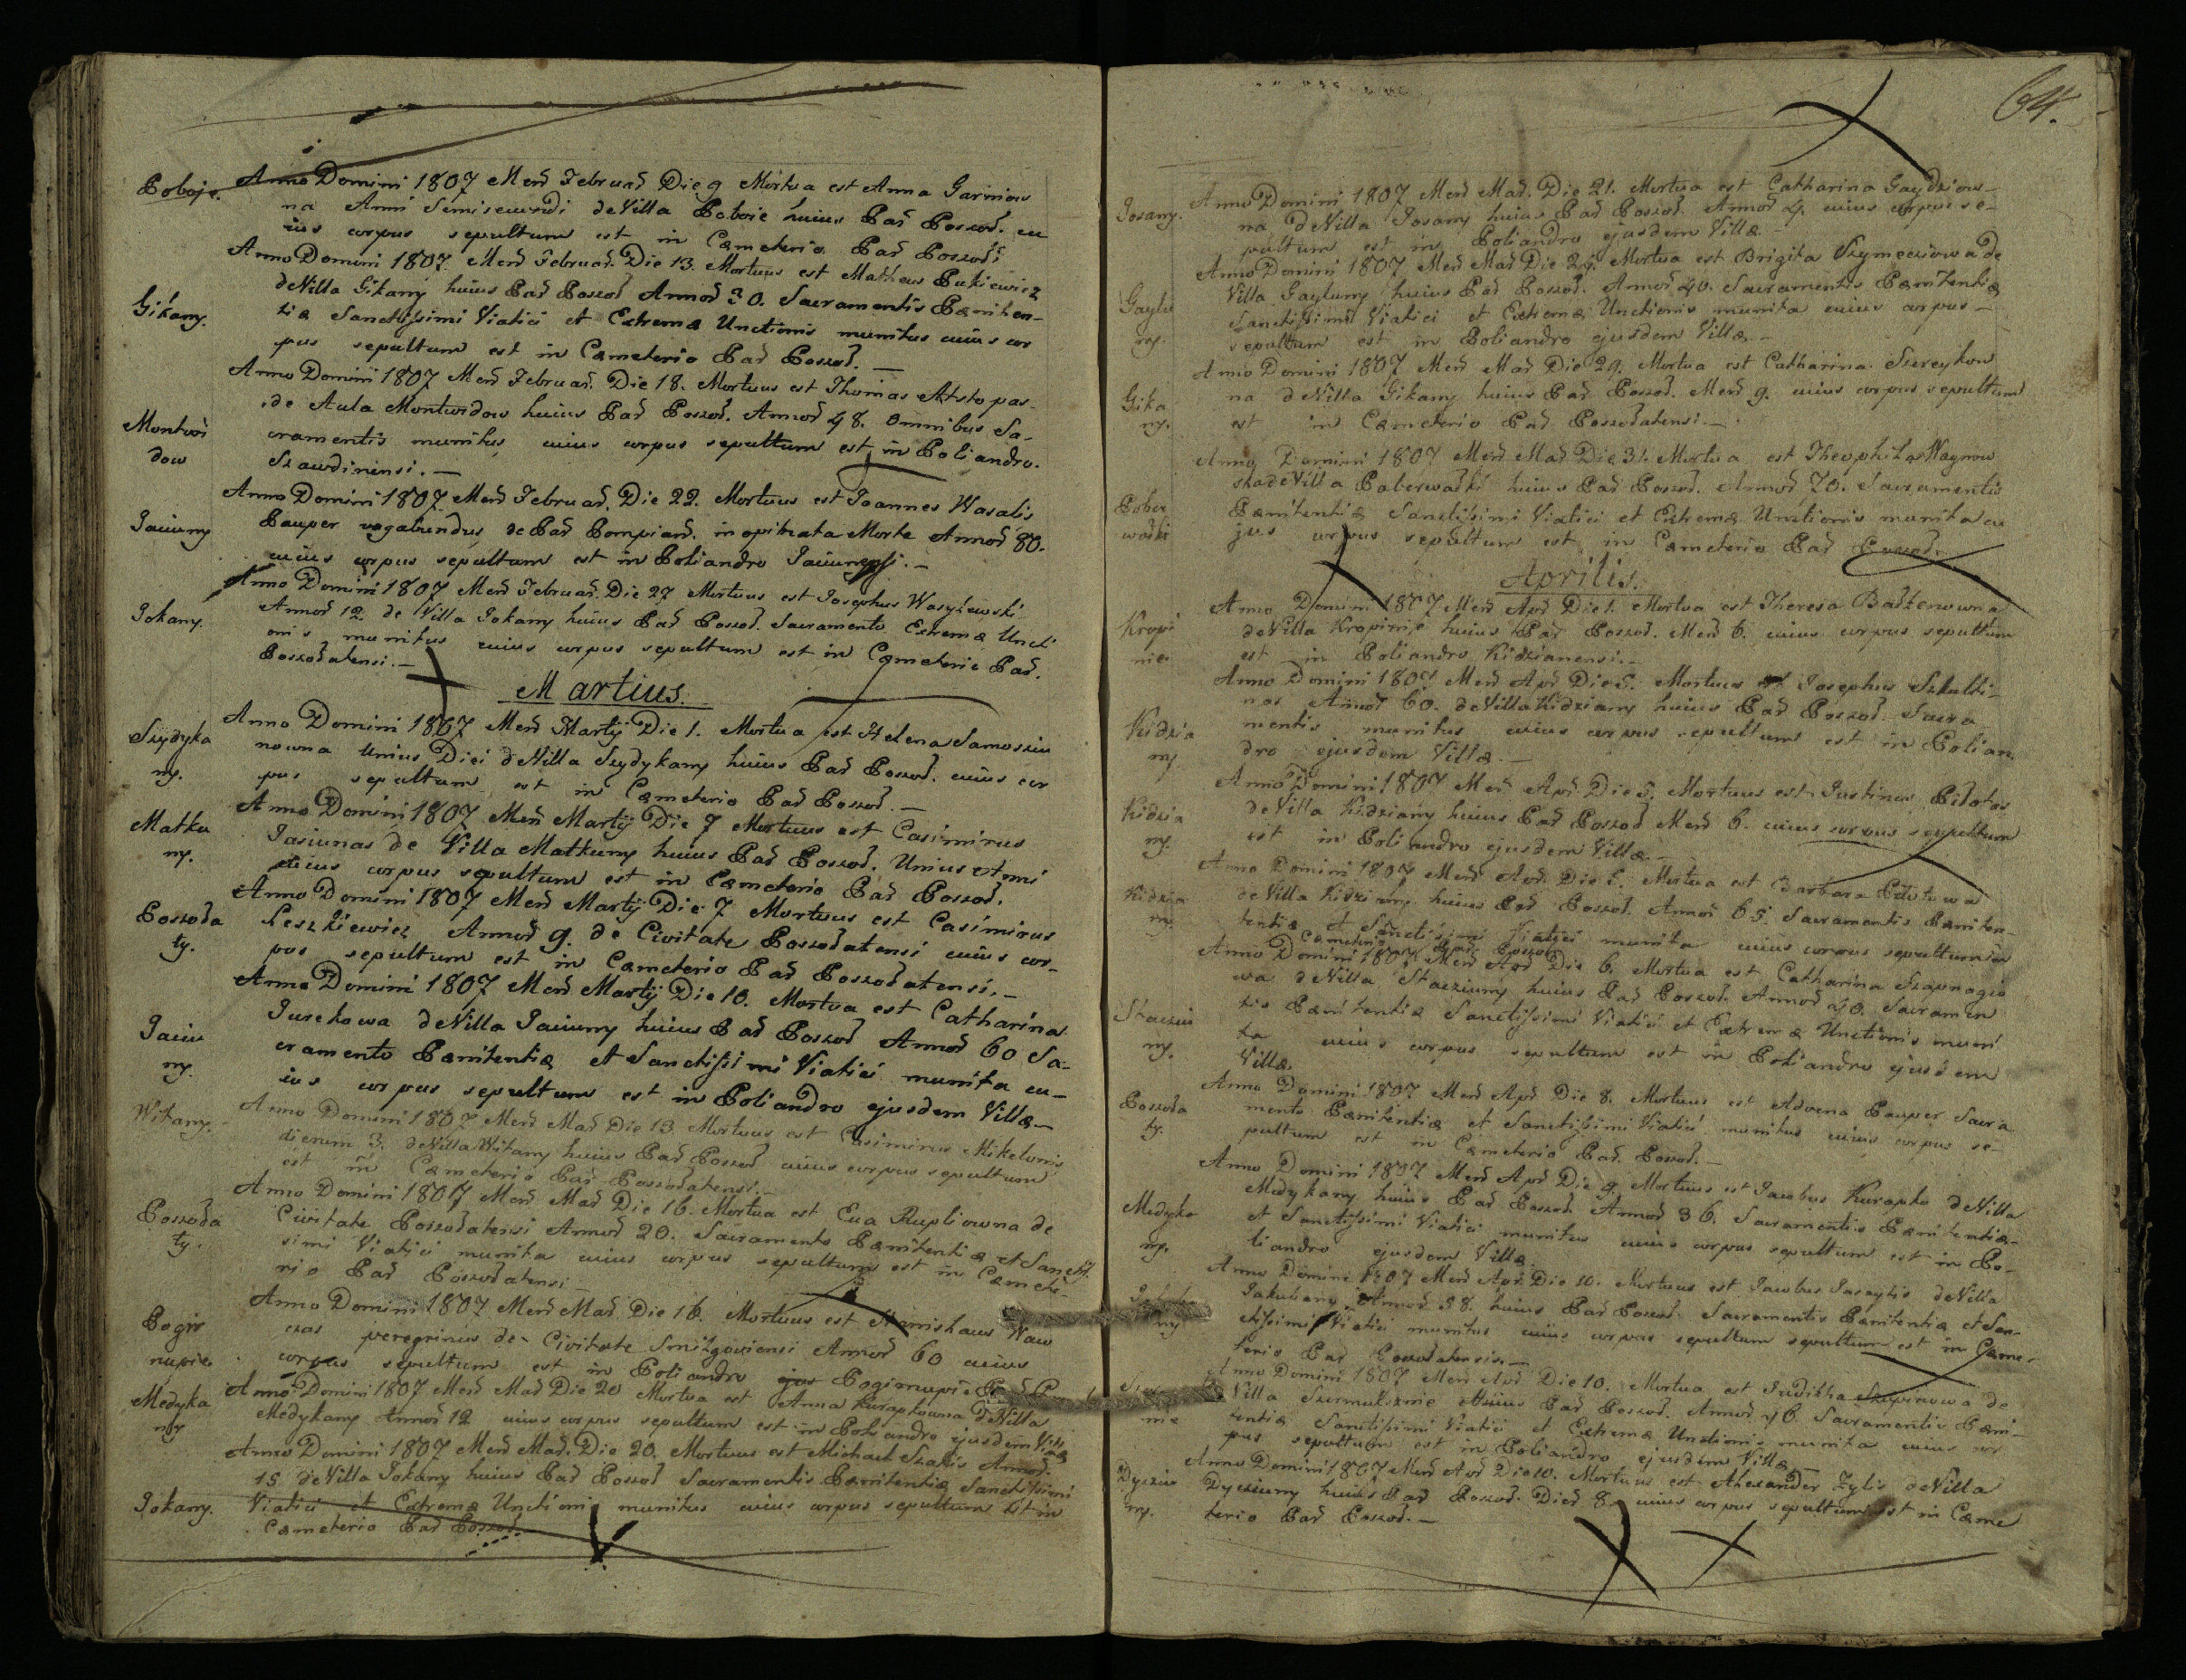 Poboje. Anno Domini 1807 Mens Februar Die 9 Mortua est Anna Gariniow
na Anni Semisecundi de Villa Poboie huius Par Poszoł. cu
ius corpus sepultum est in Cæmeterio Par Poszołł
Anno Domini 1807. Mens Februar. Die 13. Mortuus est Matheus Pukiewicz
de Villa Gikany huius Par Poszoł Annor 30. Sacramentis Pæniten-
Gikany. tiæ Sanctissimi Viatici et Extremæ Unctionis munitus cuius cor
pus sepultum est in Cæmeterio Par Poszoł. —
Anno Domini 1807 Mens Februar. Die 18. Mortuus est Thomas
de Aula Montwidow huius Par Poszoł. Annor 48. Omnibus Sa-
Montwi cramentis munitus, cuius corpus sepultum est in Poliandro.
dow Szawdinensi. —
Anno Domini 1807. Mens Februar. Die 22. Mortuus est Joannes Wasalis
Jaciuny Pauper vagabundus de Par inopinata Morte Annor 80.
cuius corpus sepultum est in Poliandro
Anno Domini 1807 Mens Februar. Die 27 Mortuus est Josephus Wasylewski
Jokany. Annor 12. de Villa Jokany huius Par Poszoł. Sacramento Extremæ Uncti
onis munitus cuius corpus sepultum est in Cæmeterio Par.
Poszołatensi. —
Martius.
Anno Domini 1807 Mens Martij Die 1. Mortua est Helena Samosziu
Szydyka nowna Unius Diei de Villa Szydykany huius Par Poszoł. cuius cor
ny. pus sepultum est in Cæmeterio Par Poszoł. —
Anno Domini 1807 Mens Martij Die 7 Mortuus est Casimirus
Matku Jasiunas de Villa Matkuny huius Par Poszoł. Unius Anni
ny. cuius corpus sepultum est in Cæmeterio Par Poszoł.
Anno Domini 1807 Mens Martij Die 7 Mortuus est Casimirus
Poszoła Leszkiewicz Annor 9. de Civitate Poszołatensi cuius cor-
ty. pus sepultum est in Cæmeterio Par Poszołatensi. —
Anno Domini 1807 Mens Martij Die 10. Mortua est Catharina
Jurekowa de Villa Jaciuny huius Par Poszoł Annor 60 Sa-
Jaciu cramento Pænitentiæ et Sanctissimi Viatici munita cu-
ny. ius corpus sepultum est in Poliandro ejusdem Villæ —
Anno Domini 1807 Mens Mar Die 13 Mortuus est Casimirus Mikelonis
Witany. dierum 3. de Villa Witany huius Par Poszoł cuius corpus sepultum
est in Cæmeterio Par Poszołatensi. —
Anno Domini 1807 Mens Mar Die 16. Mortua est Eva Rupliowna de
Poszoła Civitate Poszołatensi Annor 20. Sacramento Pænitentiæ et Sanctis
ty. simi Viatici munita cuius corpus sepultum est in Cæmete-
rio Par Poszołatensi —
Anno Domini 1807 Mens Mar Die 16. Mortuus est Stanislaus Waw
Pogir czas peregrinus de Civitate Smilgoviensi Annor 60 cuius
nupie corpus sepultum est in Poliandro Pogirnupie
Anno Domini 1807 Mens Mar Die 20 Mortua est Anna Kurapkowna de Villa
Medyka Medykany Annor 12 cuius corpus sepultum est in Poliandro ejusdem Villæ
ny
Anno Domini 1807 Mens Mar. Die 20. Mortuus est Michael Szakis Annor.
15 de Villa Jokany huius Par Poszoł Sacramentis Pænitentiæ Sanctissimi
Jokany. Viatici et Extremæ Unctionis munitus cuius corpus sepultum est in
Cæmeterio Par Poszoł.
64.
Anno Domini 1807 Mens Mar. Die 21. Mortua est Catharina Gaydziow-
Josany. na de Villa Josany huius Par Poszoł. Annor 4. cuius corpus se-
pultum est in Poliandro ejusdem Villæ —
Anno Domini 1807 Mens Mar Die 24. Mortua est Brigita de
Gaylu Villa Gayluny huius Par Poszoł. Annor 40. Sacramentis Pænitentiæ
ny. Sanctissimi Viatici et Extremæ Unctionis munita cuius corpus —
sepultum est in Poliandro ejusdem Villæ —
Anno Domini 1807 Mens Mar Die 29. Mortua est Catharina Szreykow
Gika na de Villa Gikany huius Par Poszoł. Mens 9. cuius corpus sepultum
ny. est in Cæmeterio Par Poszołatensi. —
Anno Domini 1807 Mens Mar Die 31. Mortua est Theophila Wagnow
ska de Villa huius Par Poszoł. Annor 70. Sacramentis
Pober Pænitentiæ Sanctissimi Viatici et Extremæ Unctionis munita cu
jus corpus sepultum est in Cæmeterio Par Poszoł.
Aprilis.
Anno Domini 1807 Mens Apr Die 1. Mortua est Theresa
Kropi de Villa Kropinie huius Par Poszoł. Mens 6. cuius corpus sepultum
nie. est in Poliandro Kidzianensi. —
Anno Domini 1807 Mens Apr Die 5. Mortuus est Josephus Szkulti-
nas Annor 60. de Villa Kidziany huius Par Poszoł. Sacra
Kidzia mentis munitus cuius corpus sepultum est in Polian
ny. dro ejusdem Villæ. —
Anno Domini 1807 Mens Apr. Die 5. Mortuus est Justinus Pilotas
Kidzia de Villa Kidziany huius Par Poszoł Mens 6. cuius corpus sepultum
ny. est in Poliandro ejusdem Villæ. —
Anno Domini 1807 Mens Apr. Die 5. Mortua est Barbara Pilotowa
Kidzia de Villa Kidziany huius Par Poszoł. Annor 65 Sacramentis Pæniten-
ny. tiæ et Sanctissimi Viatici munita cuius corpus sepultum in
Cæmeterio Par Poszoł
Anno Domini 1807 Mens Apr Die 6. Mortua est Catharina Szapnagio
wa de Villa Stacziuny huius Par Poszoł. Annor 40. Sacramen
Stacziu tis Pænitentiæ Sanctissimi Viatici et Extremæ Unctionis muni
ny. ta cuius corpus sepultum est in Poliandro ejusdem
Villæ.
Anno Domini 1807 Mens Apr Die 8. Mortuus est Advena Pauper Sacra
Poszoła mento Pænitentiæ et Sanctissimi Viatici munitus cuius corpus se-
ty. pultum est in Cæmeterio Par. Poszoł. —
Anno Domini 1807 Mens Apr Die 9. Mortuus est Jacobus Kurapka de Villa
Medyka Medykany huius Par Poszoł. Annor 36. Sacramentis Pænitentiæ-
ny. et Sanctissimi Viatici munitus cuius corpus sepultum est in Po-
liandro ejusdem Villæ.
Anno Domini 1807 Mens Apr. Die 10. Mortuus est Jacobus de Villa
Jakubany Annor 38. huius Par Poszoł. Sacramentis Pænitentiæ et San-
ny ctissimi Viatici munitus cuius corpus sepultum sepultum est in Cæme-
terio Par Poszołatensis. —
Anno Domini 1807 Mens Apr Die 10. Mortua est Juditha de
Villa huius Par Poszoł. Annor 46. Sacramentis Pæni-
nie tentiæ Sanctissimi Viatici et Extremæ Unctionis munita cuius cor
pus sepultum est in Poliandro ejusdem Villæ —
Anno Domini 1807 Mens Apr Die 10. Mortuus est Alexander Zylis de Villa
Dycziu Dycziuny huius Par Poszoł. Dier 8. cuius corpus sepultum est in Cæme
ny. terio Par Poszoł. —